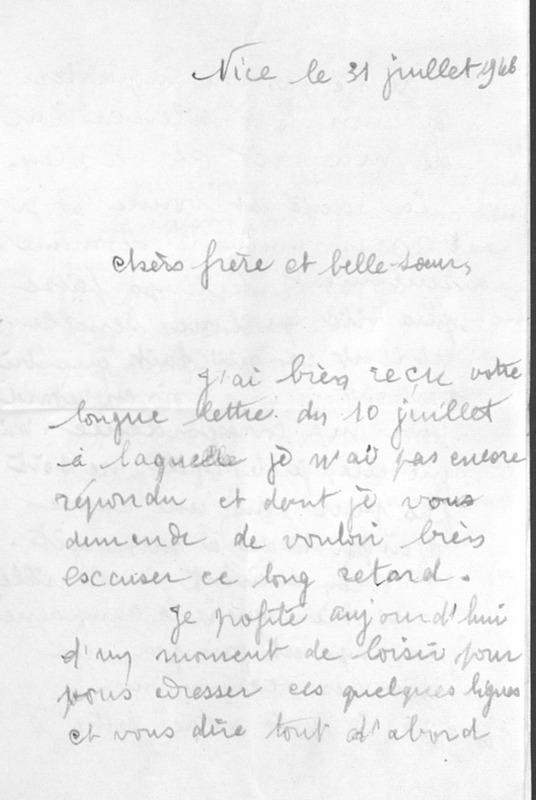 Nice le 31 juillet 1946
chers frère et belle-sœur,
J'ai bien reçu votre
longue lettre du 10 juillet
à laquelle je n'ai pas encore
répondu et dont je vous
demande de vouloir bien
escuser ce long retard.
Je profite aujourd'hui
d'un moment de loisir pour
vous adresser ces quelques lignes
et vous dire tout d'abord